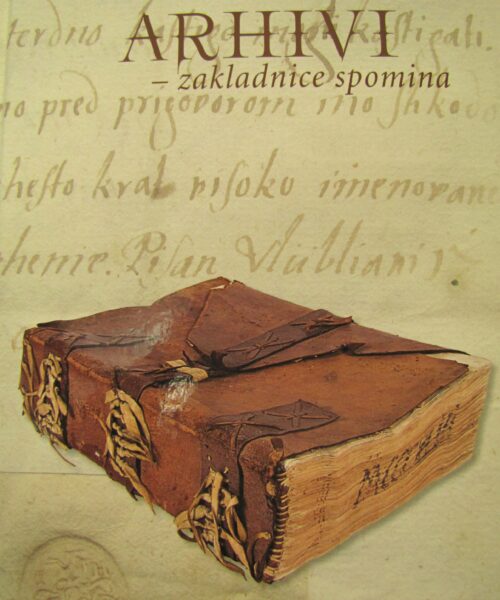 ARHIVI
– zakladnice spomina
terdno
no pred prigovorom ino shkodo
hesto kral visoku imenovano
henie. Pisan Vlublani